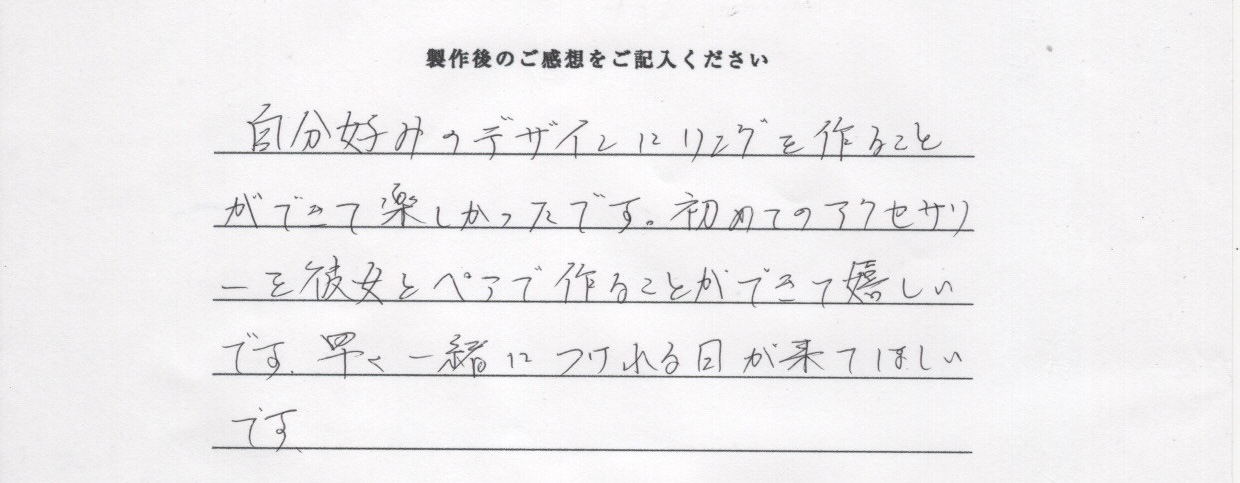 製作後のご感想をご記入ください
自分好みのデザインにリングを作ること
ができて楽しかったです。初めてのアクセサリ
ーを彼女とペアで作ることができて嬉しい
です。早く一緒につけれる日が来てほしい
です。